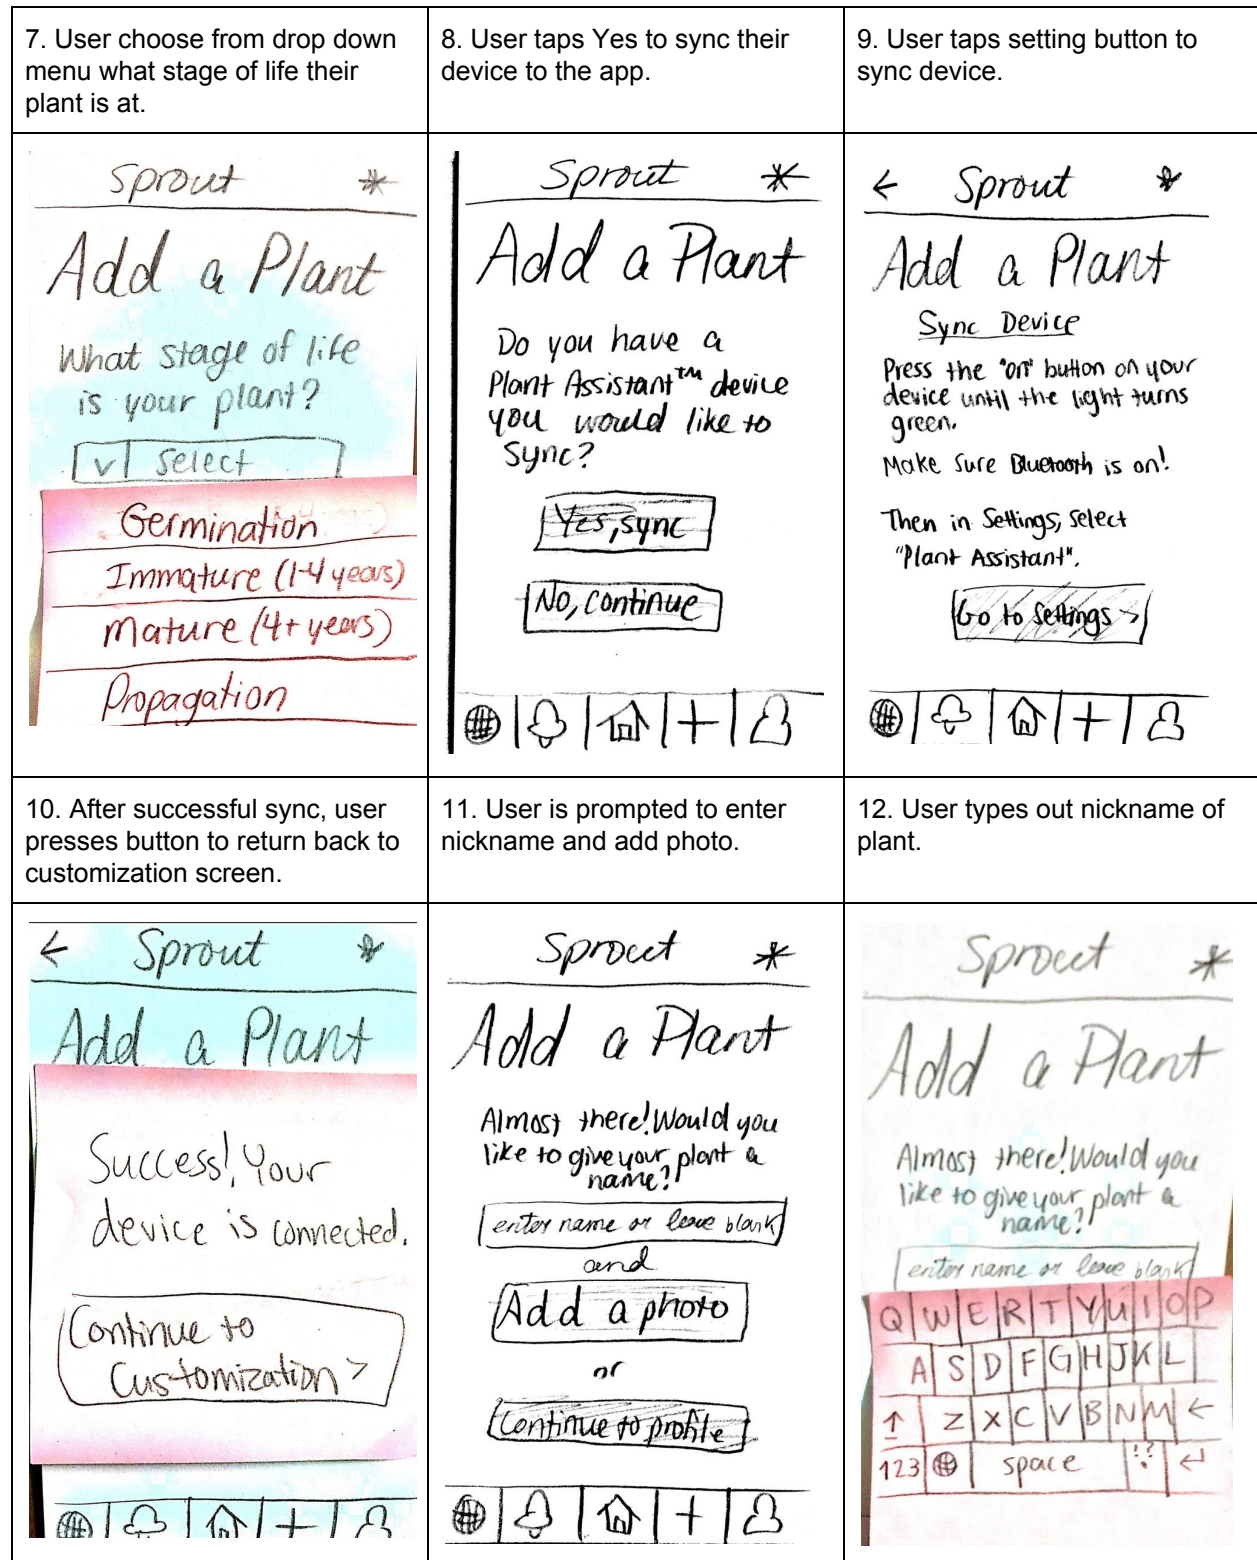 7. User choose from drop down
menu what stage of life their
plant is at.
8. User taps Yes to sync their
device to the app.
9. User taps setting button to
sync device.
Sprout
Add a Plant
What stage of life
is your plant?
v Select
Germination
Immature (1-4 years)
Mature (4+ years)
Propagation
Sprout
Add a Plant
Do you have a
Plant Assistant™ device
you would like to
Sync?
Yes, sync
No, continue
← Sprout
Add a Plant
Sync Device
Press the "on" button on your
device until the light turns
green.
Make sure Bluetooth is on!
Then in Settings, select
"Plant Assistant".
Go to settings >
10. After successful sync, user
presses button to return back to
customization screen.
11. User is prompted to enter
nickname and add photo.
12. User types out nickname of
plant.
← Sprout
Add a Plant
Success! Your
device is connected.
Continue to
Customization >
Sprout
Add a Plant
Almost there! Would you
like to give your plant a
name?
enter name or leave blank
and
Add a photo
or
Continue to profile
Sprout
Add a Plant
Almost there! Would you
like to give your plant a
name?
enter name or leave blank
Q W E R T Y U I O P
A S D F G H J K L
↑ Z X C V B N M ←
123 space !?. ↵